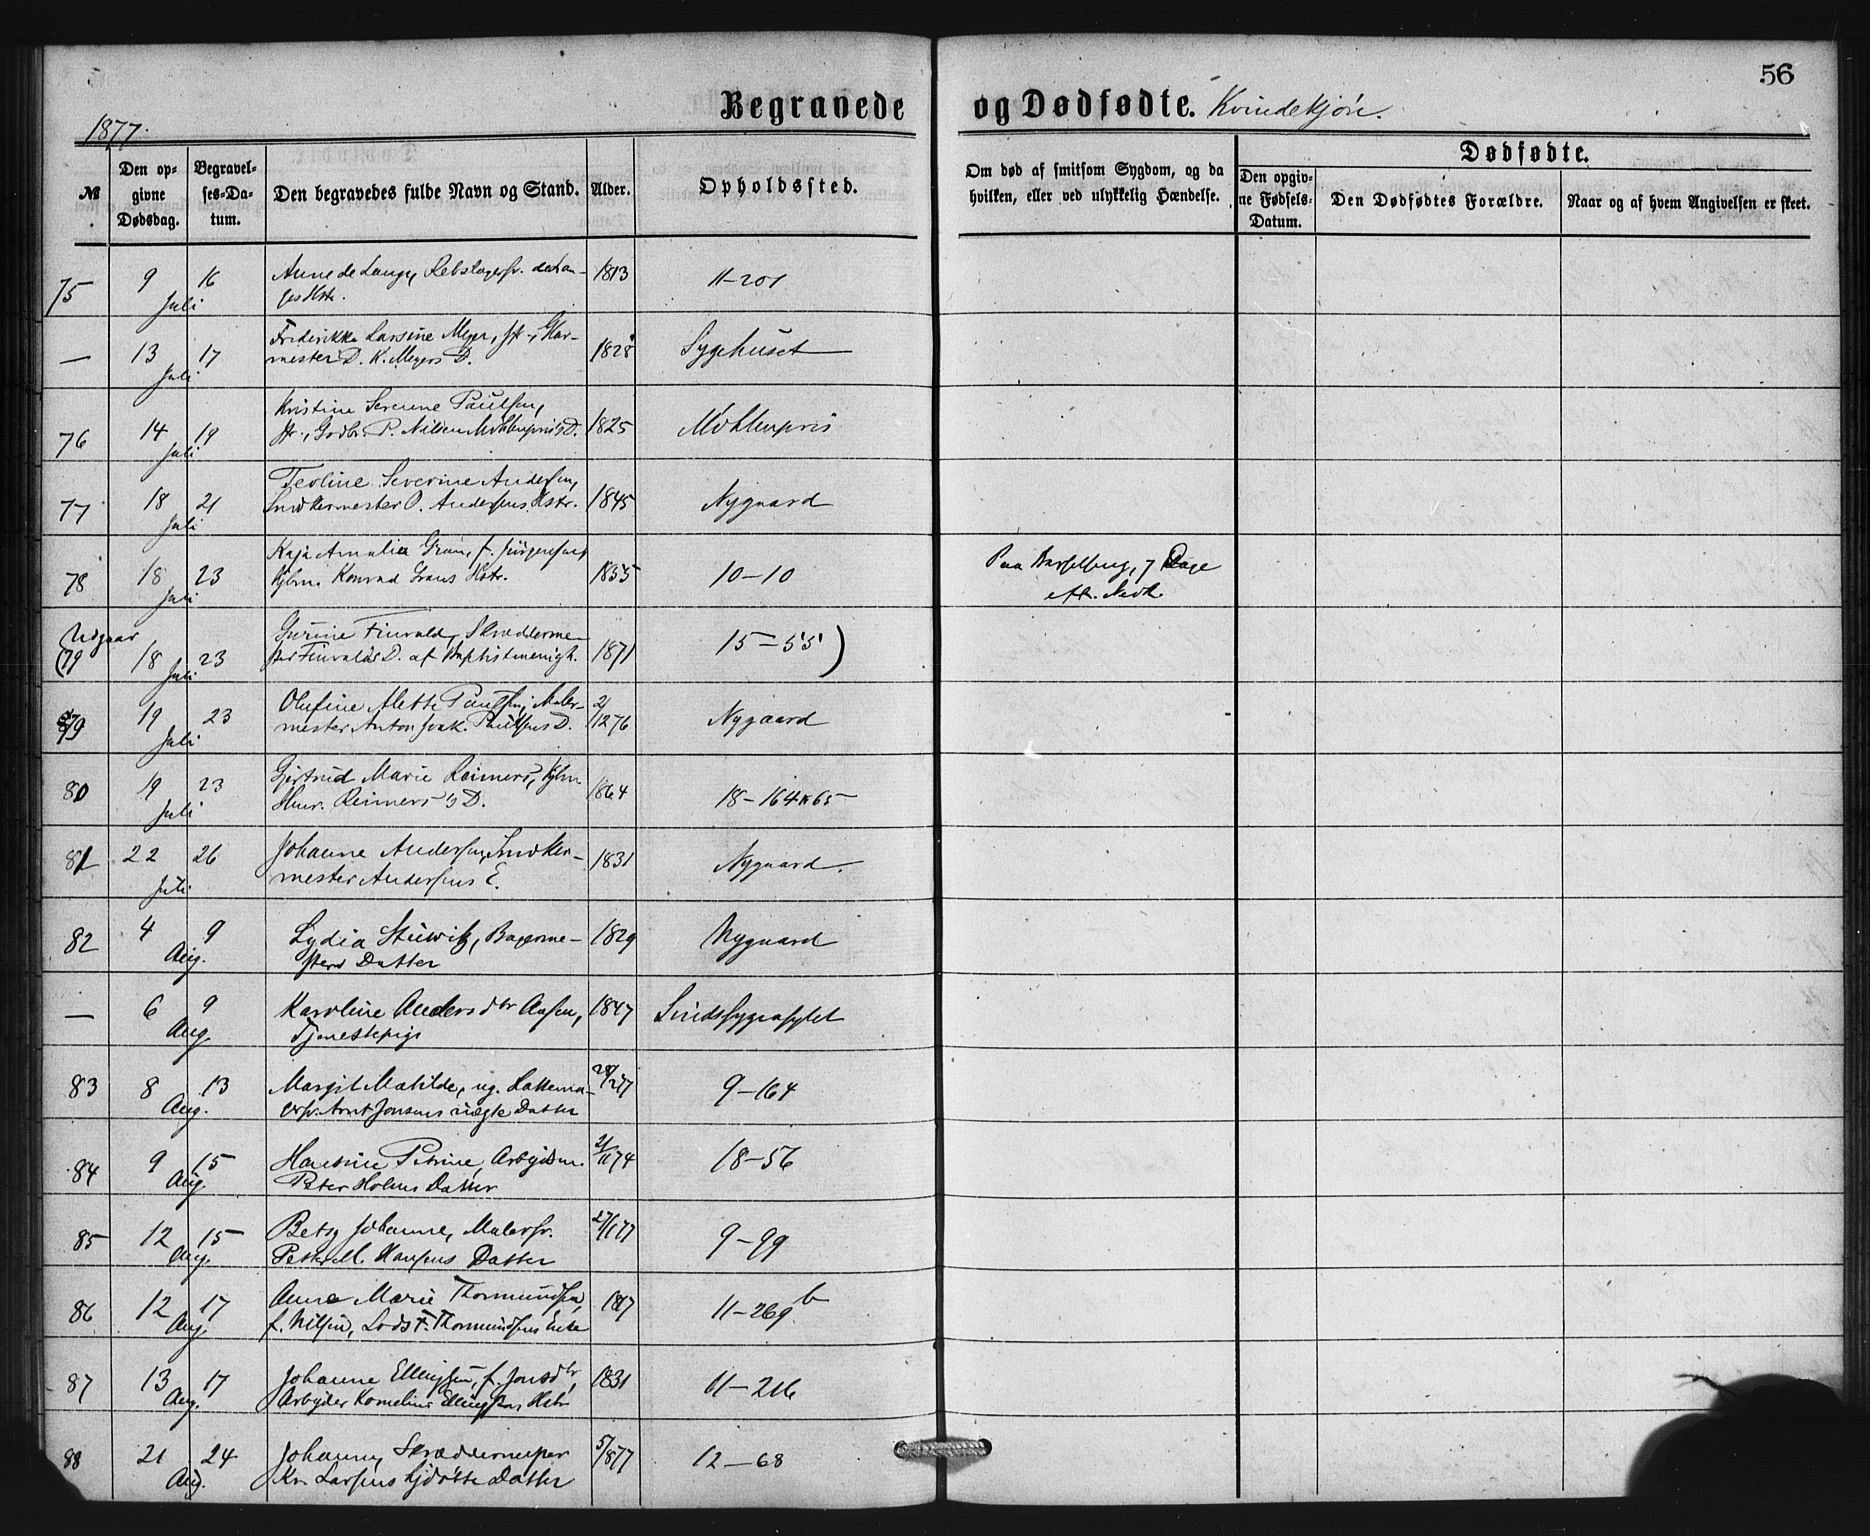 56
Begravede og Dødfødte. Kvindekjøn.
1877.
№
Den opgivne Dødsdag.
Begravelses-Datum.
Den begravedes fulde Navn og Stand.
Alder.
Opholdssted.
Om død af smitsom Sygdom, og da hvilken, eller ved ulykkelig Hændelse.
Dødfødte.
Den opgivne Fødsels-Datum.
Den Dødfødtes Forældre.
Naar og af hvem Angivelsen er skeet.
75 9 Juli 16 Anne de Lange, Rebslagersv. de Lan-
ges Hstr. 1813 11-201
— 13 Juli 17 Frederikke Larsine Meyer, Glar-
mester D. K. Meyers D. 1828 Sygehuset
76 14 Juli 19 Kristine Severine Paulsen,
P. Nilsen Møhlenpris D. 1825 Møhlenpris
77 18 Juli 21 Teoline Severine Andersen,
Snedkermester O. Andersens Hstr. 1845 Nygaard
78 18 Juli 23 Kaja Amalia Gran, f. Jürgensen,
Kjbm. Konrad Grans Hstr. 1855 10-10 Paa Barselseng, 7 Dage
eft. Nedk.
Udgaar
(79 18 Juli 23 Gurine Finvald, Skrædderme-
ster Finvalds D. af Baptistmenigh. 1871 15-55)
79 19 Juli 23 Olufine Alette Paulsen, Maler-
mester Anton Joak. Paulsens D. 2/12 76 Nygaard
80 19 Juli 23 Gjertrud Marie Reimers, Kjbm
Henr. Reimers's D. 1864 18-164 & 65
81 22 Juli 26 Johanne Andersen, Snedker-
mester Andersens E. 1831 Nygaard.
82 4 Aug. 9 Lydia Stuwitz, Bagerme-
sters Datter 1829 Nygaard
— 6 Aug. 9 Karoline Anders dtr Aasen,
Tjenestepige 1847 Sindssygeasylet
83 8 Aug. 13 Margit Matilde, ug. Lattema-
gersv. Arnt Jonsens uægte Datter 28/2 77 9-164
84 9 Aug. 15 Hansine Petrine, Arbeidsm.
Peter Holms Datter 21/11 74 18-56
85 12 Aug. 15 Betsy Johanne, Malersv.
Petter M. Hansens Datter 27/1 77 9-99
86 12 Aug. 17 Anne Marie Thormundsen,
f. Nilsen, Lods T. Thormundsens Enke 1817 11-269 b
87 13 Aug. 17 Johanne Ellingsen, f. Jonsdtr,
Arbeider Kornelius Ellingsens Hstr 1831 11-216
88 21 Aug. 24 Johanne, Skræddermester
Kr. Larsens hjdøbte Datter 5/8 77 12-68